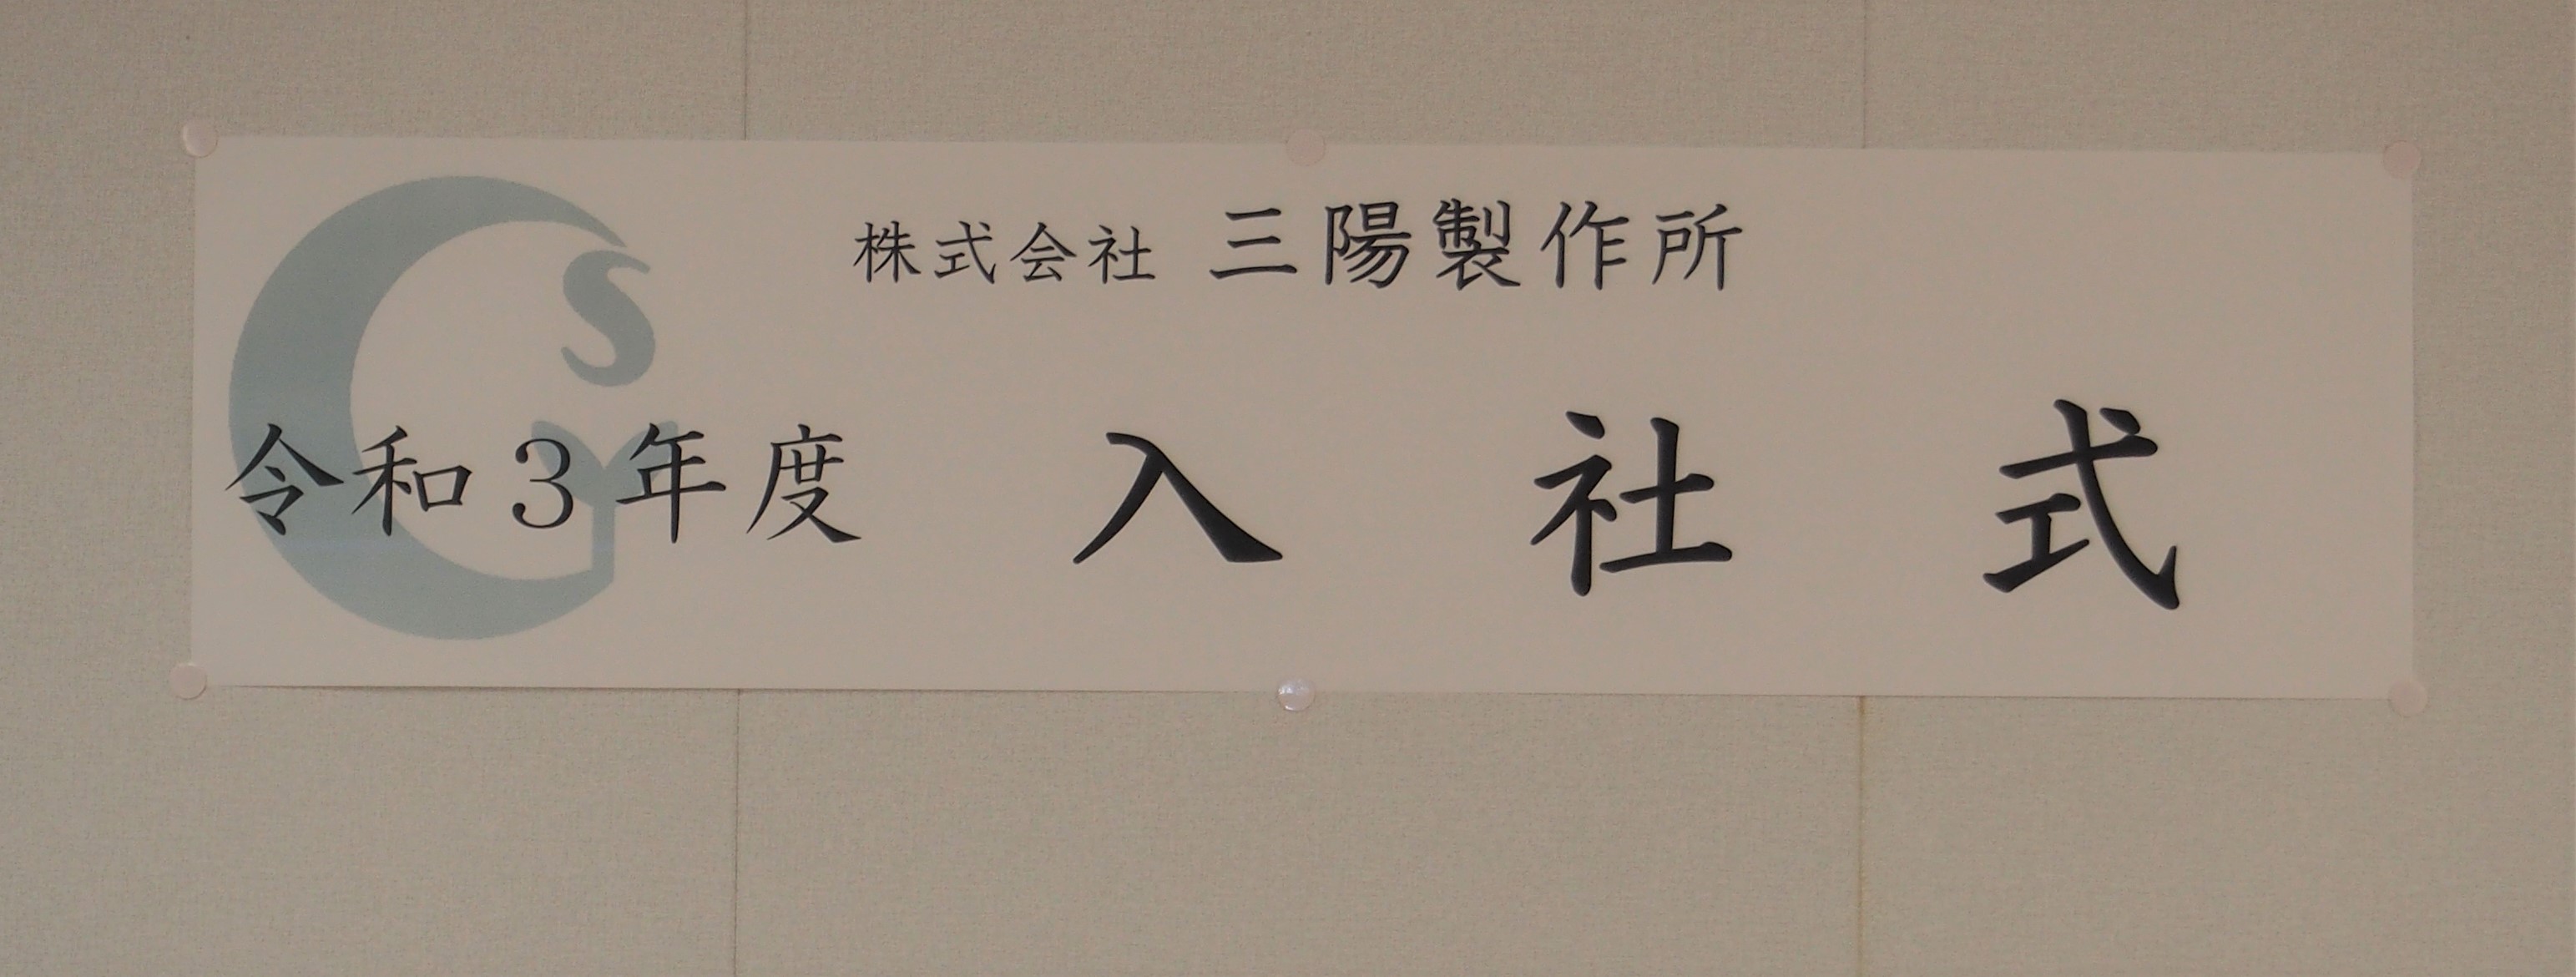 株式会社 三陽製作所
令和3年度 入社式